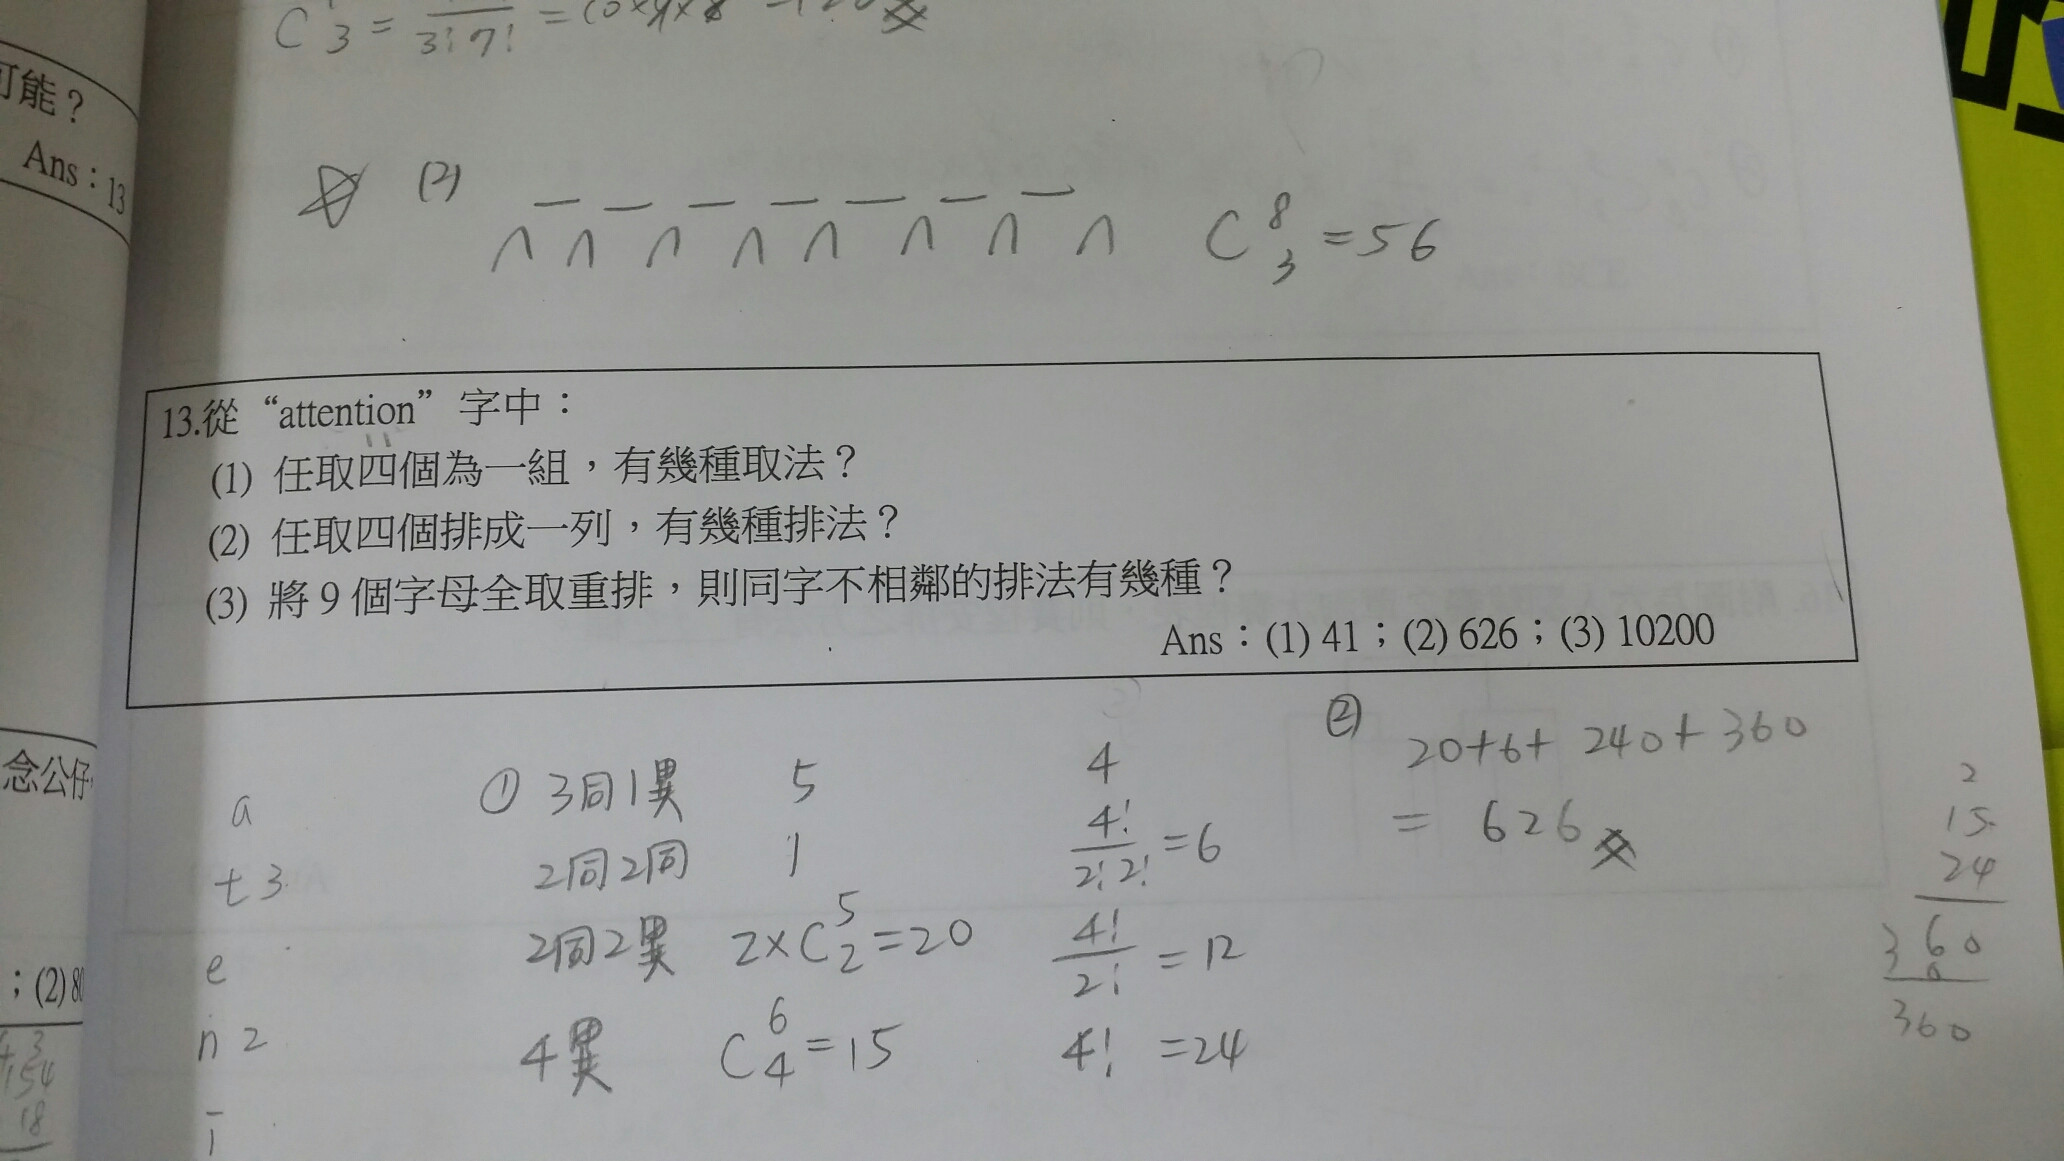 C 3 = 3! 7! = 10×9×8
可能？
Ans：13
(2)
C 8 3 = 56
13.從“attention”字中：
(1) 任取四個為一組，有幾種取法？
(2) 任取四個排成一列，有幾種排法？
(3) 將 9 個字母全取重排，則同字不相鄰的排法有幾種？
Ans：(1) 41；(2) 626；(3) 10200
念公仔
；(2) 80
a
t 3
e
n 2
i
① 3同1異 5 4
2同2同 1 4!/2!2! = 6
2同2異 2×C 5 2 = 20 4!/2! = 12
4異 C 6 4 = 15 4! = 24
② 20+6+240+360
= 626
2
15
24
360
360
154
18